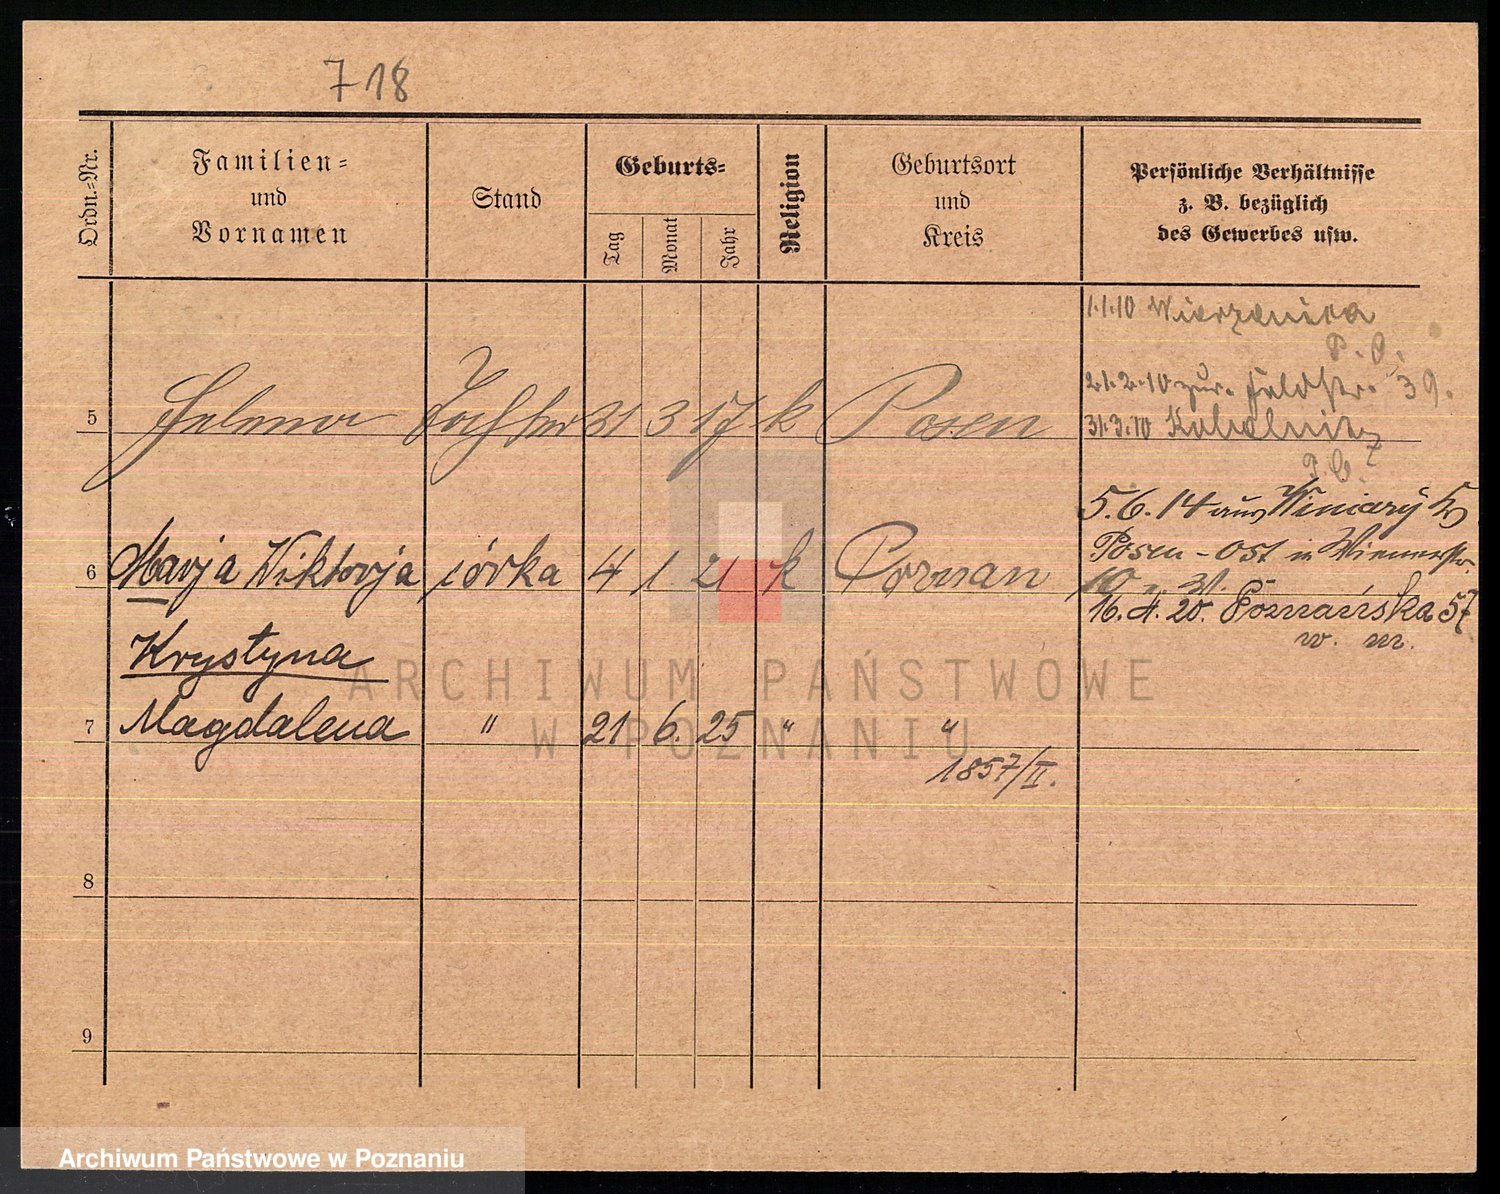 718
Ordn.-Nr.
Familien-
und
Vornamen
Stand
Geburts-
Tag
Monat
Jahr
Religion
Geburtsort
und
Kreis
Persönliche Verhältnisse
z. B. bezüglich
des Gewerbes usw.
1.1.10 Wierzenica
P. O.
21.2.10 zur. Feldstr. 39.
31.3.10 Kobelnitz
5 Helena Tochter 31 3 17 k Posen
5.6.14 aus Winiary Kr
Posen-Ost in Wienerstr.
10
6 Marja Wiktorja córka 4 1 21 k Poznan
16.4.20. Poznańska 57
w. m.
Krystyna
7 Magdalena " 21 6. 25 " "
1857/II.
8
9
ARCHIWUM PAŃSTWOWE
W POZNANIU
Archiwum Państwowe w Poznaniu